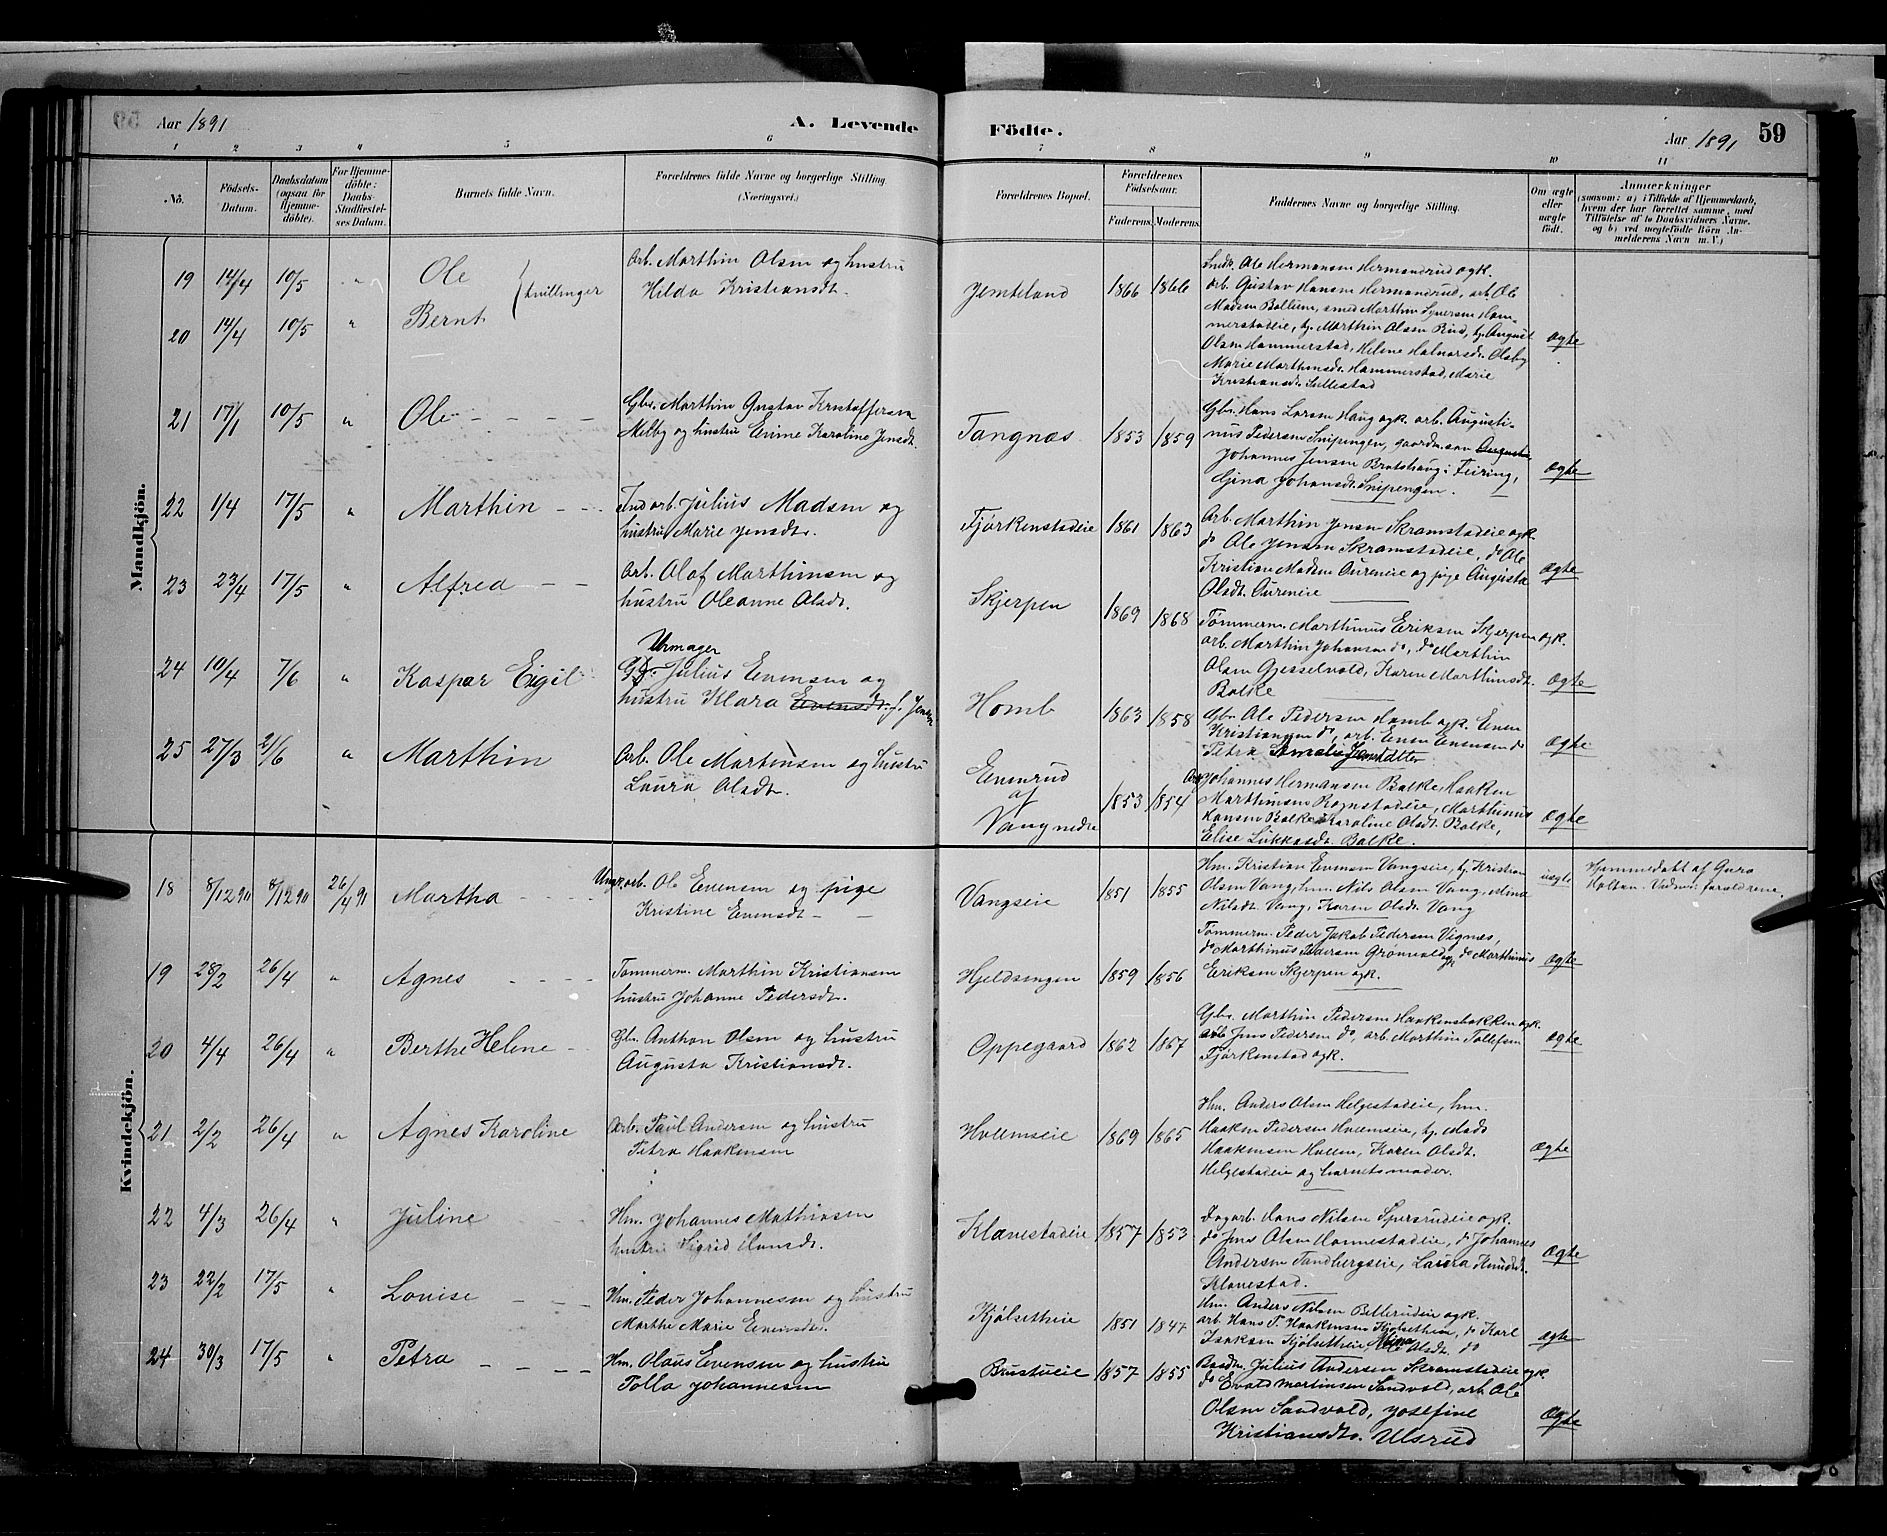 Aar 1891
A. Levende
Födte.
Aar 1891
59
1 2 3 4 5 6 7 8 9 10 11
No.
Födsels-Datum.
Daabsdatum (ogsaa for Hjemmedöbte).
For Hjemmedöbte: Daabs-Stadfæstelses Datum.
Barnets fulde Navn.
Forældrenes fulde Navne og borgerlige Stilling. (Næringsvei.)
Forældrenes Bopæl.
Forældrenes Födselsaar.
Faderens. Moderens.
Faddernes Navne og borgerlige Stilling.
Om ægte eller uægte födt.
Anmærkninger
(saasom: a) i Tilfælde af Hjemmedaab, hvem der har forrettet samme, med Tilföielse af to Daabsvidners Navne, og b) ved uægtefödte Börn Anmelderens Navn m. V.)
Mandkjön.
19 14/4 10/5 " Ole
20 14/4 10/5 " Bernt
tvillinger
Arb. Marthin Olsen og hustru
Hilda Kristiansdt.
Jemteland 1866 1866
Ole Hermansen Hermandrud ogk.
arb. Gustav Hansen Hermandrud, arb. Ole
Madsen Bollum, smed Marthin Syversen Ham-
merstadeie, tj. Marthin Olsen Rud, tj. August
Olsen Hammerstad, Helene Halvorsdt. Olsby
Marie Marthinsdt. Hammerstad, Marie
Kristiansdt. Sullestad
ægte
21 17/1 10/5 " Ole
Gbr. Marthin Gustav Kristoffersen
Melby og hustru Evine Karoline Jensdt.
Tangnæs 1853 1859
Gbr. Hans Larsen Haug ogk. arb. Augusti-
nus Pedersen Snipengen, gaardm. søn
Johannes Jensen Bratshaug i Feiring,
Gina Johansdt. Snipengen.
ægte
22 1/4 17/5 " Marthin
Ind. arb. Julius Madsen og
hustru Marie Jensdt.
Fjørkenstadeie 1861 1863
Arb. Marthin Jensen Skramstadeie ogk.
do Ole Jensen Skramstadeie, do Ole
Kristian Madsen Aureneie og pige Augusta
Olsdt. Aureneie
ægte
23 23/4 17/5 " Alfred
Arb. Olaf Marthinsen og
hustru Oleanne Olsdt.
Skjerpen 1869 1868
Tømmerm. Marthinus Eriksen Skjerpen ogk.
arb. Marthin Johansen do, do Marthin
Olsen Gjesselvold, Karen Marthinsdt.
Balke
ægte
24 10/4 7/6 " Kaspar Eigil
Urmager
Julius Evensen og
hustru Klara Evensdt. f. Jensen
Homb 1863 1858
Gbr. Ole Pedersen Homb ogk. Even
Kristiansen do, arb. Even Evensen do
Petra Amalie Jensdatter
ægte
25 27/3 21/6 " Marthin
Arb. Ole Martinsen og hustru
Laura Olsdt.
Evenrud
af
Vang nedre 1853 1854
Arb. Johannes Hermansen Balke, Haaken
Marthinsen Rognstadeie, Marthinus
Hansen Balke, Karoline Olsdt. Balke,
Elise Lukkasdt. Balke.
ægte
Kvindekjön.
18 8/12 90 8/12 90 26/4 91 Martha
Ungk. arb. Ole Evensen og pige
Kristine Evensdt.
Vangseie 1851 1855
Hm. Kristian Evensen Vangseie, tj. Kristian
Olsen Vang, hm. Nils Olsen Vang, Mina
Nilsdt. Vang, Karen Olsdt. Vang
uægte
Hjemmedøbt af Guro
Holten. Vidner: forældrene.
19 28/2 26/4 " Agnes
Tommerm. Marthin Kristiansen
hustru Johanne Pedersdt.
Hjeldsingen 1859 1856
Tømmerm. Peder Jakob Pedersen Vignes,
do Marthinus Pedersen Grønvold ogk do Marthinus
Eriksen Skjerpen ogk.
ægte
20 4/4 26/4 " Berthe Helene
Gbr. Anthon Olsen og hustru
Augusta Kristiansdt.
Oppegaard 1862 1867
Gbr. Marthin Pedersen Haakensbakken ogk.
arb. Jens Pedersen do, arb. Marthin Tollefsen
Fjørkenstad ogk.
ægte
21 2/2 26/4 " Agnes Karoline
Arb. Paul Andersen og hustru
Petra Haakensen
Holemseie 1869 1865
Hm. Anders Olsen Helgestadeie, hm.
Haaken Pedersen Holemseie, tj. Mads
Haakensen Holem, Karen Olsdt.
Helgestadeie og barnets moder.
ægte
22 4/3 26/4 " Juline
Hm. Johannes Mathiasen
hustru Sigrid Hansdt.
Klanestadeie 1857 1853
Dagarb. Hans Nilsen Spersrudeie ogk.
do Jens Olsen Hannestadeie, do Johannes
Andersen Sandbergseie, Laura Knudsdt.
Klanestad.
ægte
23 22/2 17/5 " Lovise
Hm. Peder Johannesen og hustru
Marthe Marie Evensdt.
Kjølsetheie 1851 1847
Hm. Anders Nilsen Bellerudeie ogk.
arb. Hans P. Haakensen Kjølsetheie, do Karl
Isaksen Kjølsetheie, Olsdt. do
ægte
24 30/3 17/5 " Petra
Hm. Olaus Evensen og hustru
Tolla Johannesen
Brustueie 1857 1855
Julius Andersen Skramstadeie ogk.
do Evald Martinsen Sandvold, arb. Ole
Olsen Sandvold, Josefine
Kristiansdt. Ulsrud
ægte